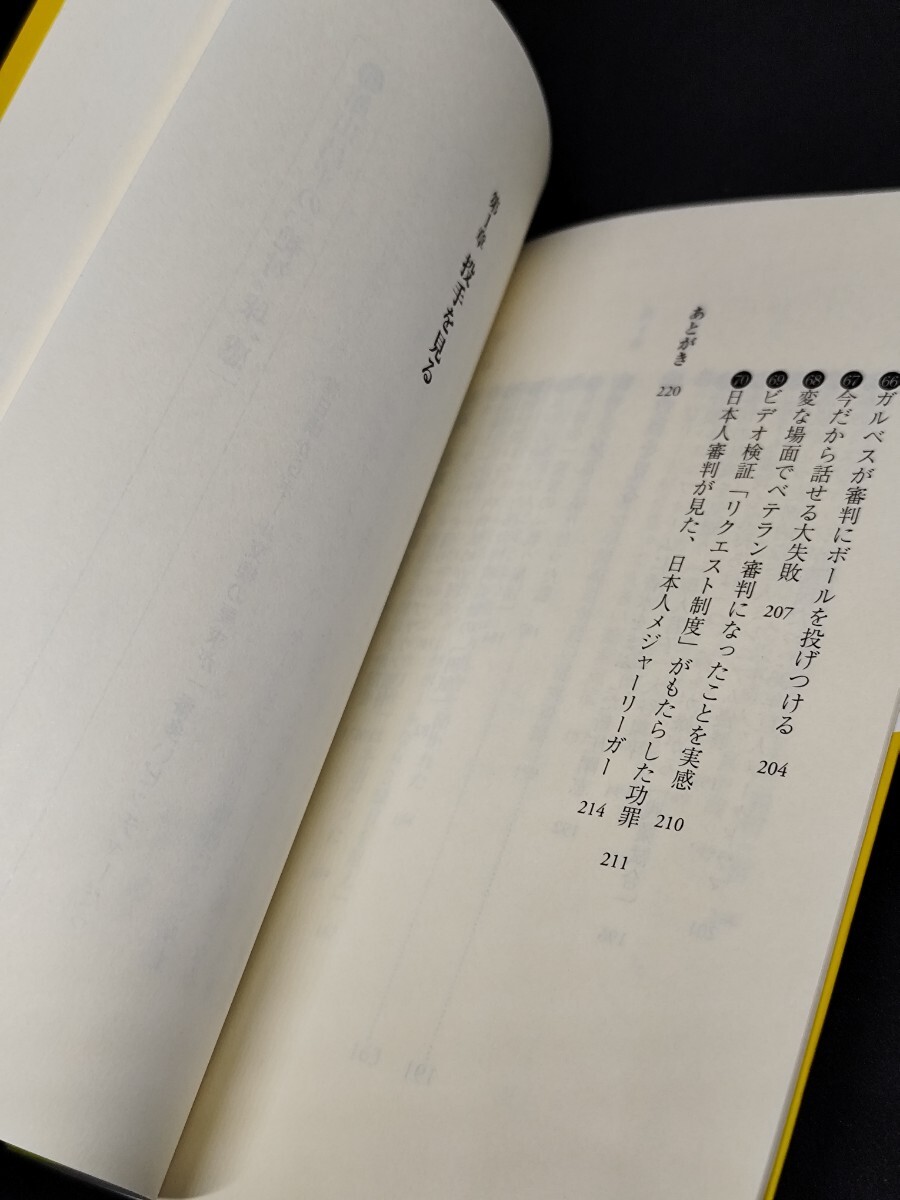 66 ガルベスが審判にボールを投げつける 204
67 今だから話せる大失敗 207
68 変な場面でベテラン審判になったことを実感 210
69 ビデオ検証「リクエスト制度」がもたらした功罪 211
70 日本人審判が見た、日本人メジャーリーガー 214
あとがき 220
第1章 投手を見る